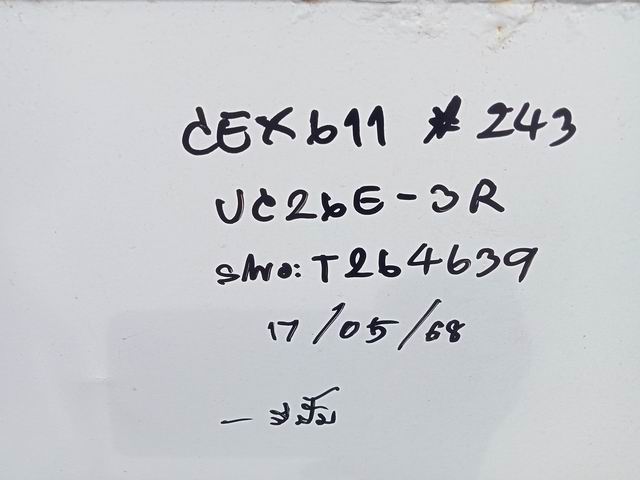 CEX611 # 243
UC26E-3R
S/No: T264639
17/05/68